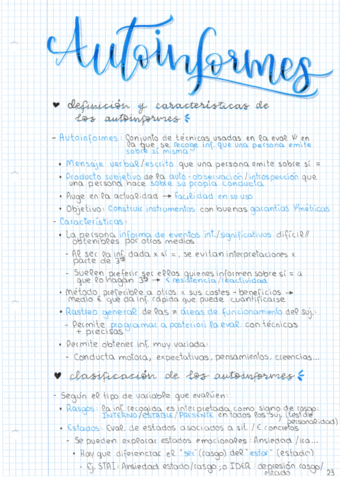 Autoinformes
♥ definición y características de
los autoinformes
- Autoinformes: Conjunto de técnicas usadas en la eval. Ψ en
la que se recoge inf. que una persona emite
sobre sí misma
• Mensaje verbal/escrito que una persona emite sobre sí =
• Producto subjetivo de la auto-observación/introspección que
una persona hace sobre su propia conducta
• Auge en la actualidad → facilidad en su uso
• Objetivo: Construir instrumentos con buenas garantías Ψmétricas
- Características:
• La persona informa de eventos int./significativos difícil//
obtenibles por otros medios
- Al ser la inf. dada x sí =, se evitan interpretaciones x
parte de 3ºs
- Suelen preferir ser ellos quienes informen sobre sí = a
que lo hagan 3ºs → resistencia/reactividad
• Método preferible a otros x sus costes-beneficios →
medio € que da inf. rápida que puede cuantificarse
• Rastreo general de las ≠ áreas de funcionamiento del suj.:
- Permite programar a posteriori la eval. con técnicas
+ precisas
• Permite obtener inf. muy variada:
- Conducta motora, expectativas, pensamientos, creencias...
♥ clasificación de los autoinformes
- Según el tipo de variable que evalúen:
• Rasgos: la inf. recogida es interpretada como signo de rasgo:
INTERNO/ESTABLE/PRESENTE en todos los suj. (test de
personalidad)
• Estados: Eval. de estados asociados a sit. / concretos
- Se pueden explorar estados emocionales: Ansiedad / ira...
• Hay que diferenciar el "ser" (rasgo) del "estar" (estado)
- Ej. STAI: Ansiedad estado/rasgo; o IDER: depresión rasgo/
estado
23